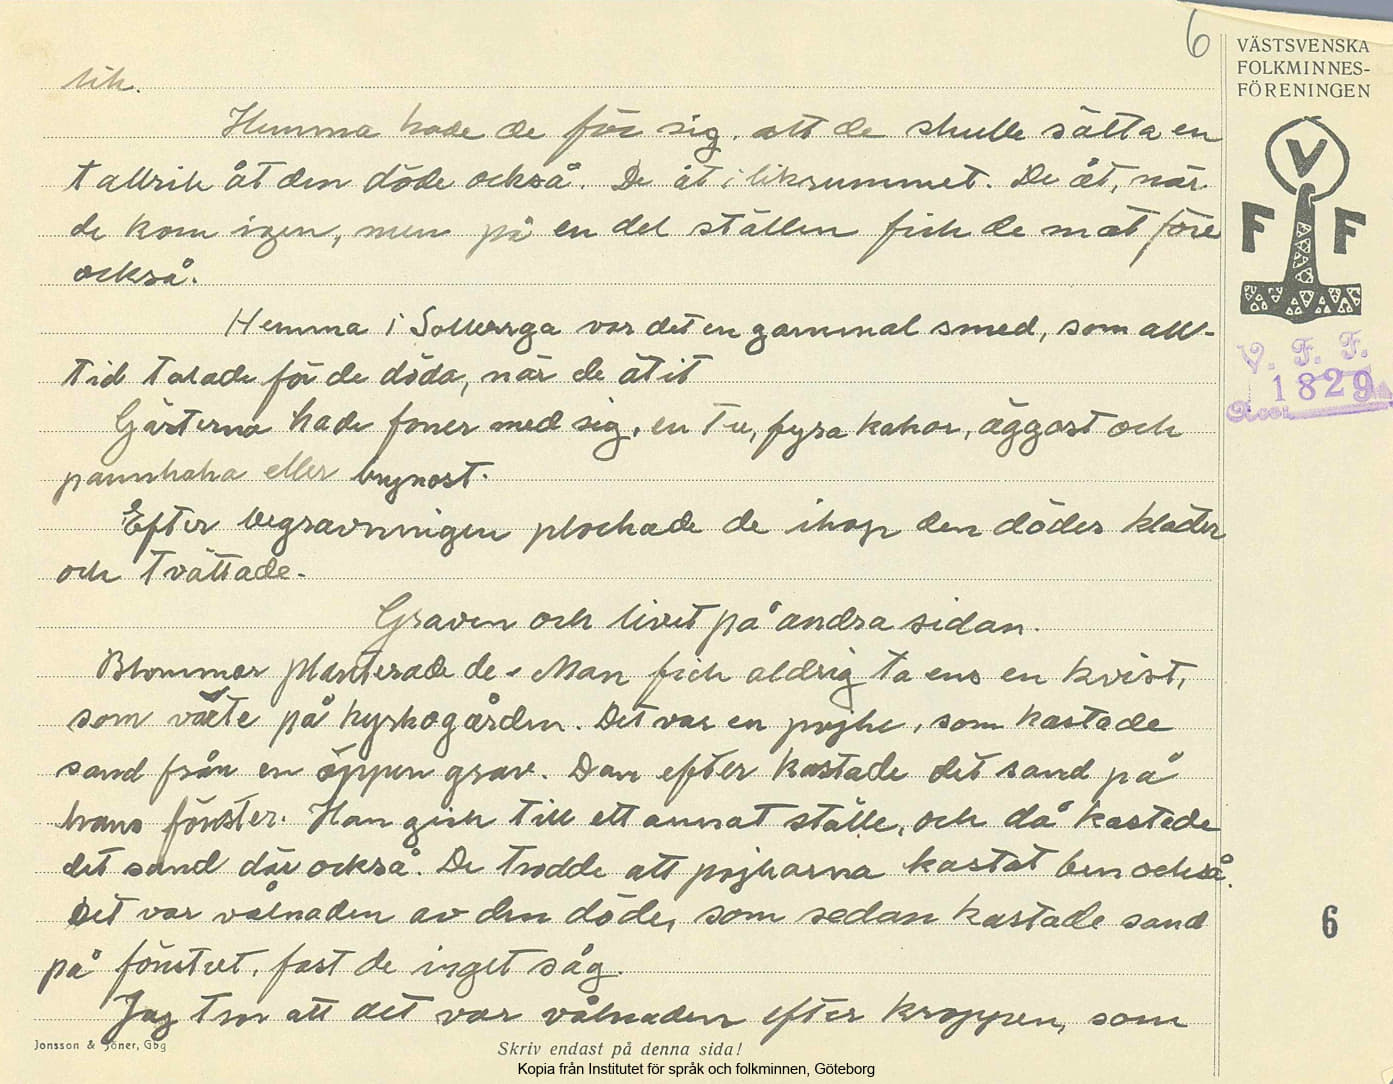 6
VÄSTSVENSKA
FOLKMINNES-
FÖRENINGEN
lik.
Hemma hade de för sig, att de skulle sätta en
tallrik åt den döde också. De åt i likrummet. De åt, när
de kom igen, men på en del ställen fick de mat före
också.
Hemma i Solberga var det en gammal smed, som all-
tid talade för de döda, när de ätit
Gästerna hade foner med sig, en tre, fyra kakor, äggost och
pannkaka eller brynost.
Efter begravningen plockade de ihop den dödes kläder
och tvättade.
Graven och livet på andra sidan.
Blommor planterade de. Man fick aldrig ta ens en kvist,
som växte på kyrkogården. Det var en pojke, som kastade
sand från en öppen grav. Dan efter kastade det sand på
hans fönster. Han gick till ett annat ställe, och då kastade
det sand där också. De trodde att pojkarna kastat ben också.
Det var vålnaden av den döde, som sedan kastade sand
på fönstret, fast de inget såg.
Jag tror att det var vålnaden efter kroppen, som
V F F
V. F. F.
1829
Acc.
6
Jonsson & Töner, Gbg
Skriv endast på denna sida!
Kopia från Institutet för språk och folkminnen, Göteborg